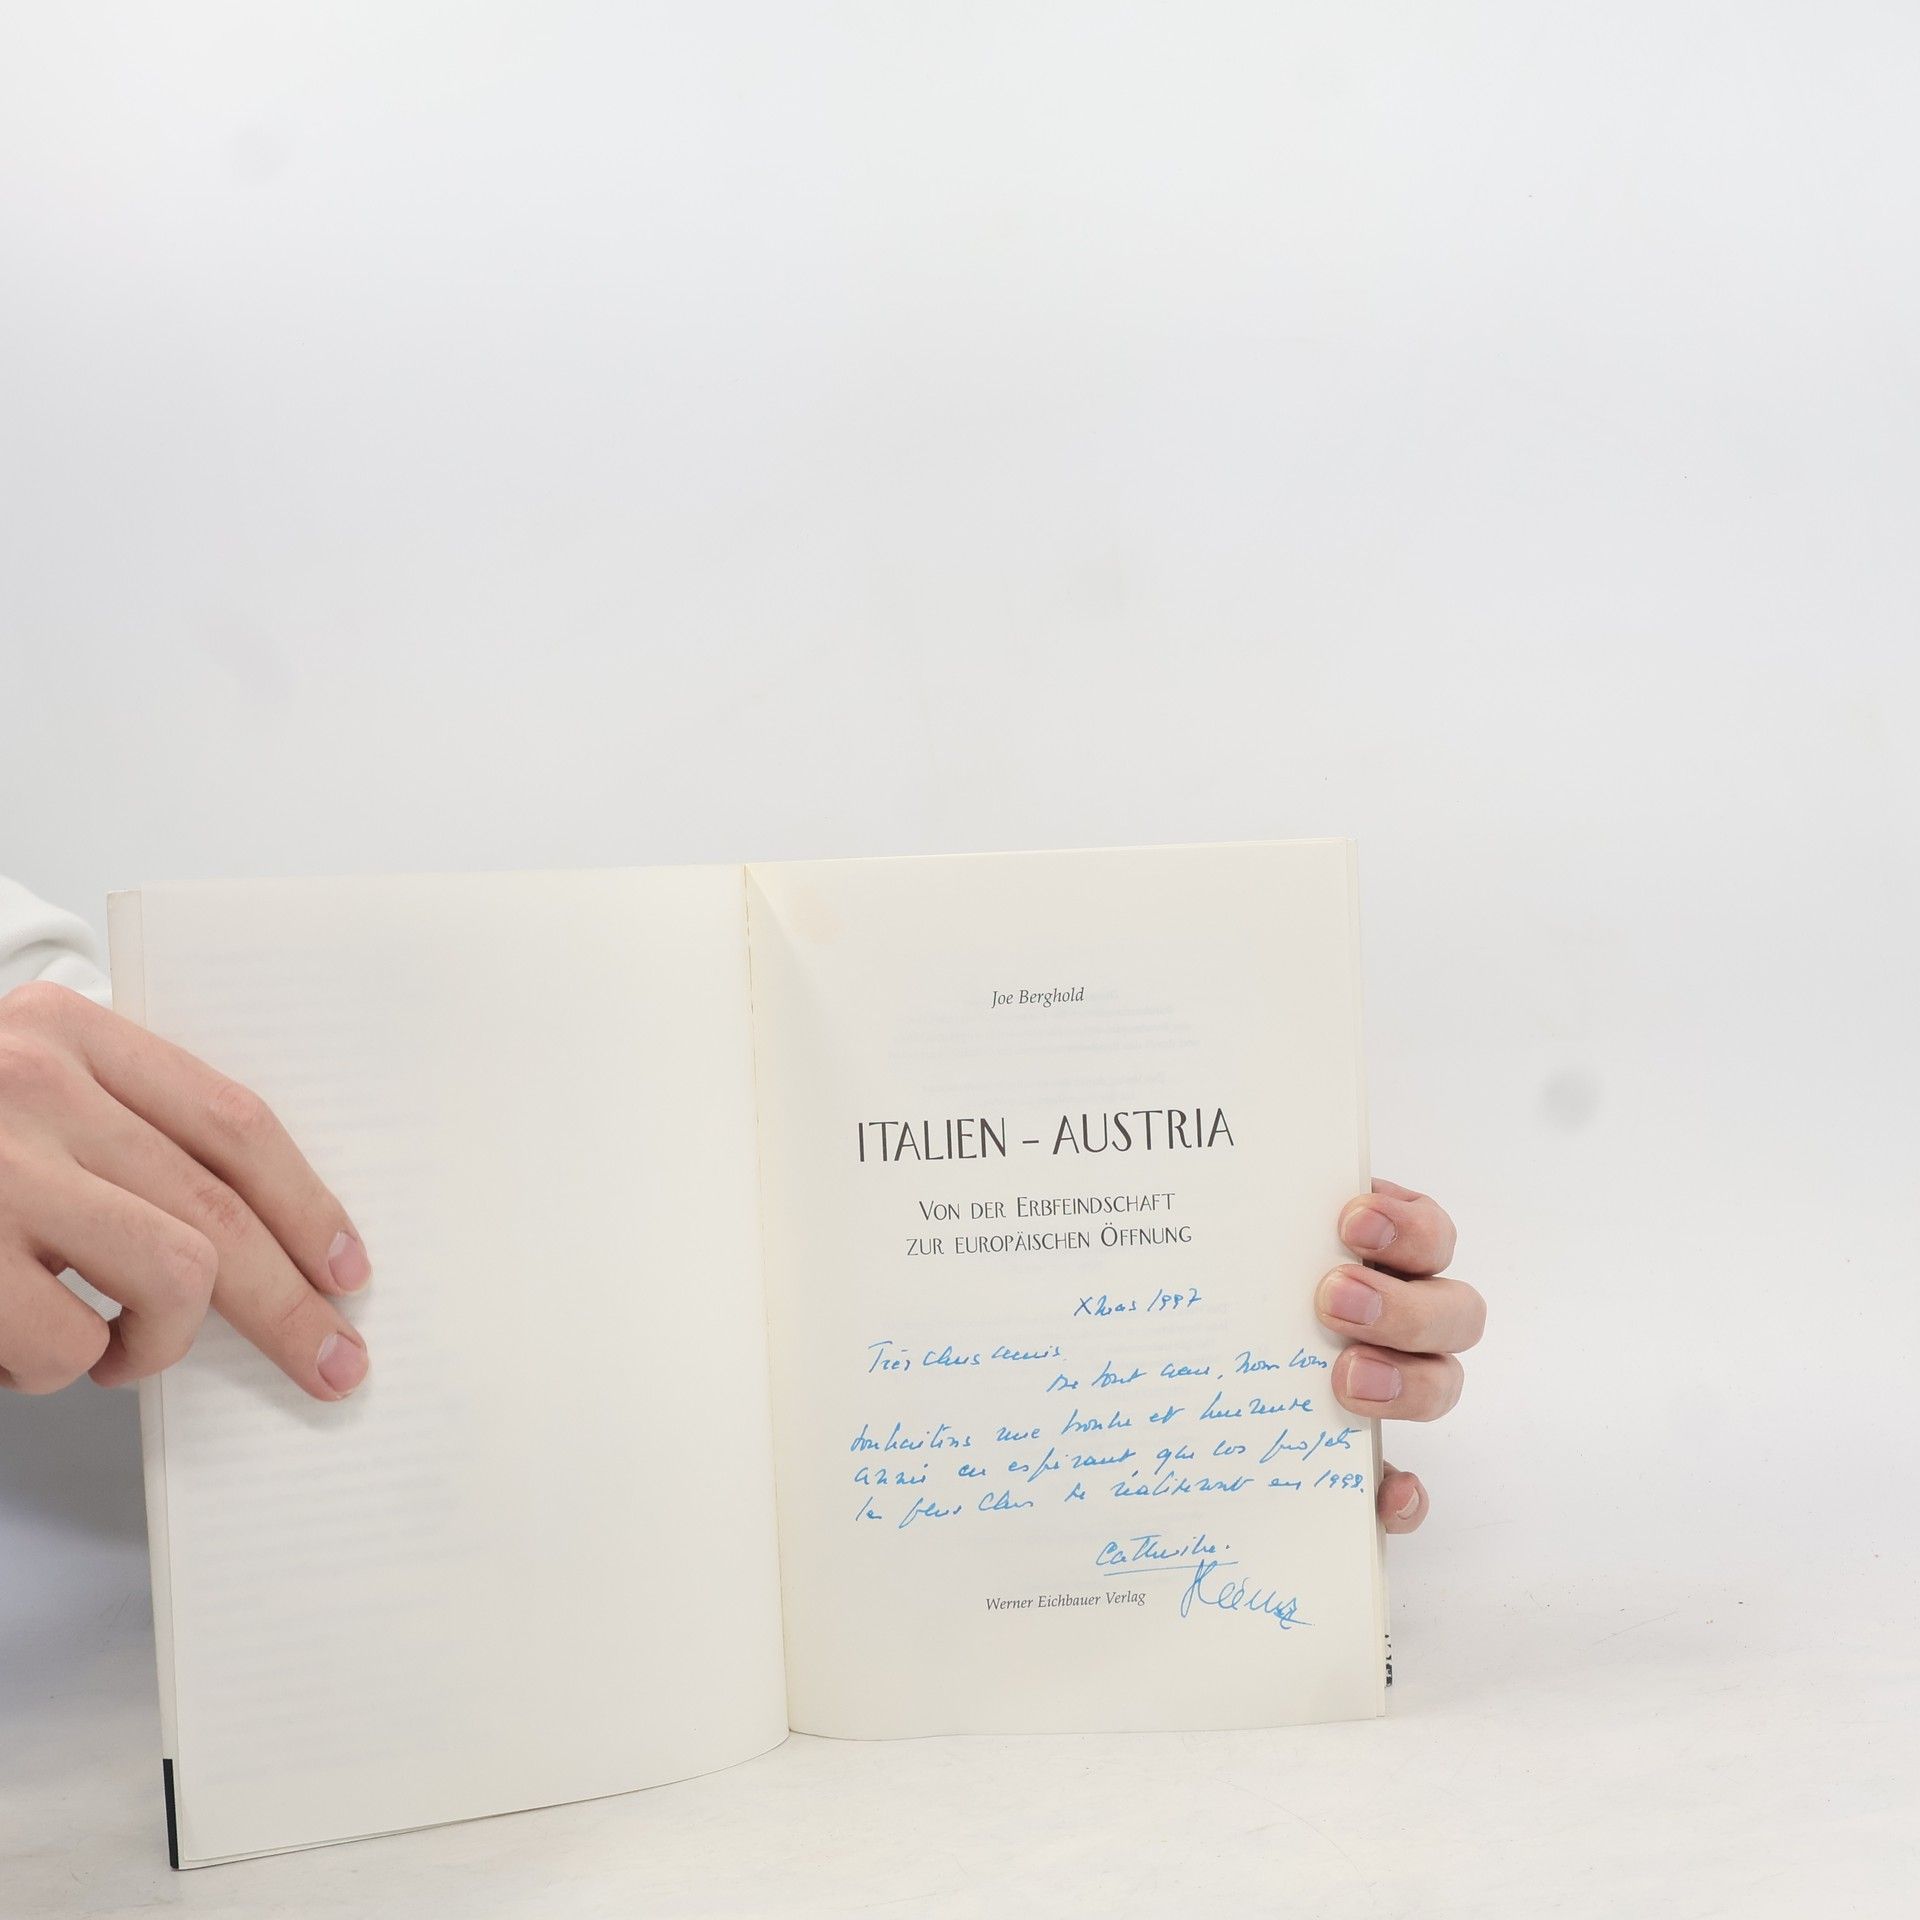 Joe Berghold
ITALIEN – AUSTRIA
VON DER ERBFEINDSCHAFT
ZUR EUROPÄISCHEN ÖFFNUNG
Xmas 1997
Très chers amis.
De tout cœur, nous vous
souhaitons une bonne et heureuse
année en espérant que vos projets
les plus chers se réaliseront en 1998.
Catherine.
Heinz
Werner Eichbauer Verlag